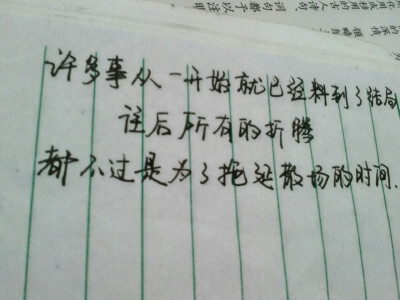 许多事从一开始就已经料到了结局
往后所有的折腾
都不过是为了拖延散场的时间.